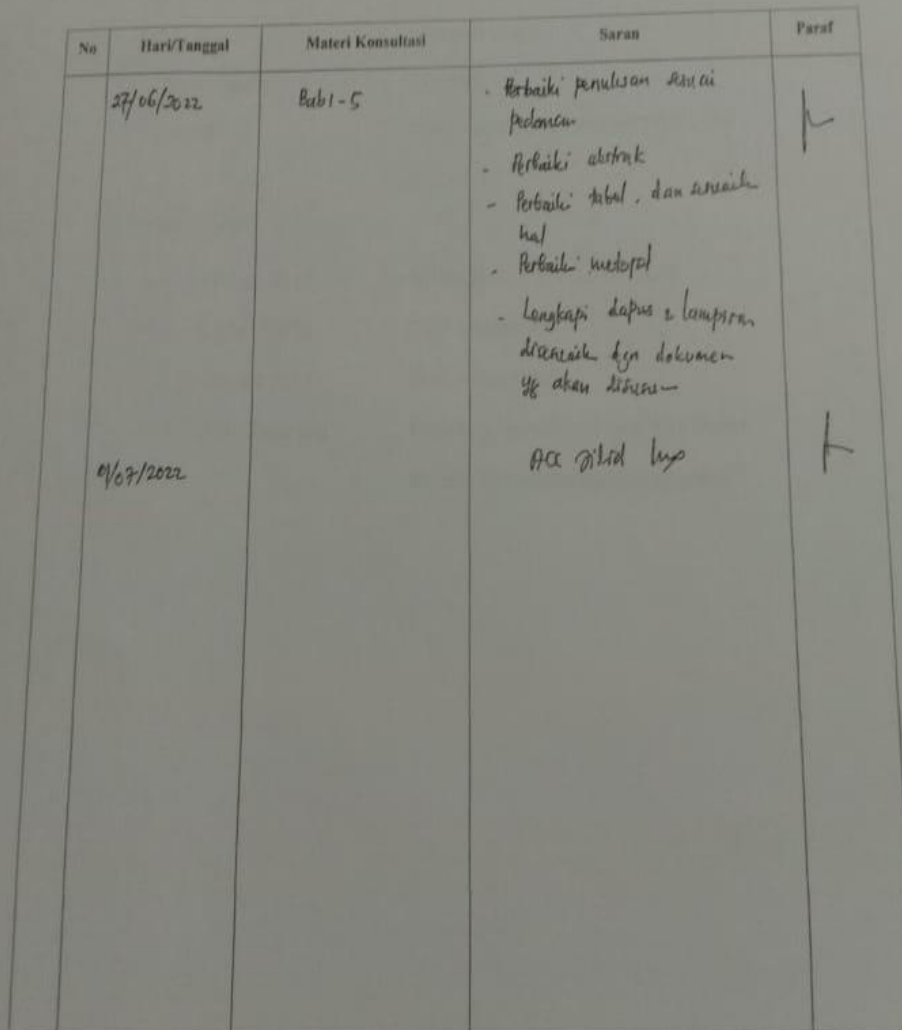 No Hari/Tanggal Materi Konsultasi Saran Paraf
27/06/2022 Bab 1 - 5 - Perbaiki penulisan sesuai
pedoman
- Perbaiki abstrak
- Perbaiki tabel, dan
hal
- Perbaiki metopel
- Lengkapi dapus & lampiran
dgn dokumen
yg akan disusun
/07/2022 ACC jilid